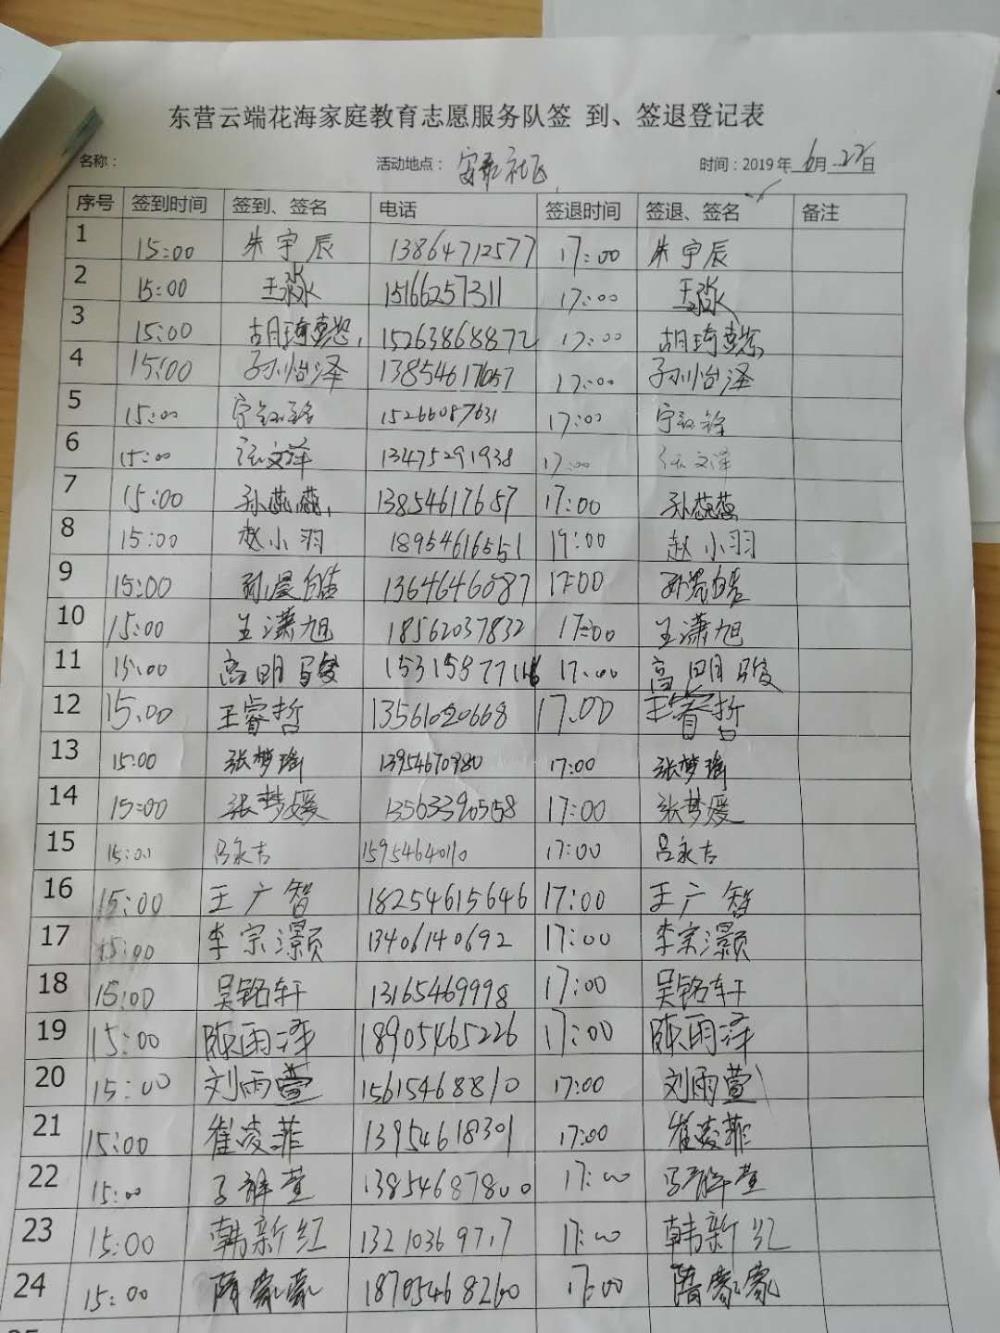 东营云端花海家庭教育志愿服务队签 到、签退登记表
名称： 活动地点： 社区 时间：2019年 6月 22日
序号 签到时间 签到、签名 电话 签退时间 签退、签名 备注
1 15:00 朱宇辰 13864712577 17:00 朱宇辰
2 15:00 王淼 15166257311 17:00 王淼
3 15:00 胡琦 15263868872 17:00 胡琦
4 15:00 孙怡泽 13854617657 17:00 孙怡泽
5 15:00 宁 15266087631 17:00 宁
6 15:00 张文萍 13475291938 17:00 张文萍
7 15:00 孙蕊蕊 13854617657 17:00 孙蕊蕊
8 15:00 赵小羽 18954616551 17:00 赵小羽
9 15:00 孙晨皓 1364646087 17:00 孙晨皓
10 15:00 王潇旭 18562037832 17:00 王潇旭
11 15:00 高明骏 17:00 高明骏
12 15.00 王睿哲 13561020668 17.00 王睿哲
13 15:00 张梦瑶 13954670980 17:00 张梦瑶
14 15:00 张梦媛 13563390558 17:00 张梦媛
15 15:00 吕永吉 15954640110 17:00 吕永吉
16 15:00 王广智 18254615646 17:00 王广智
17 15:00 李宗灏 13406140692 17:00 李宗灏
18 15:00 吴铭轩 13165469998 17:00 吴铭轩
19 15:00 陈雨泽 18905465226 17:00 陈雨泽
20 15:00 刘雨萱 15615468810 17:00 刘雨萱
21 15:00 崔凌菲 13954618301 17:00 崔凌菲
22 15:00 萱 13854687800 17:00 萱
23 15:00 韩新红 17:00 韩新红
24 15:00 隋豪豪 18705468260 17:00 隋豪豪